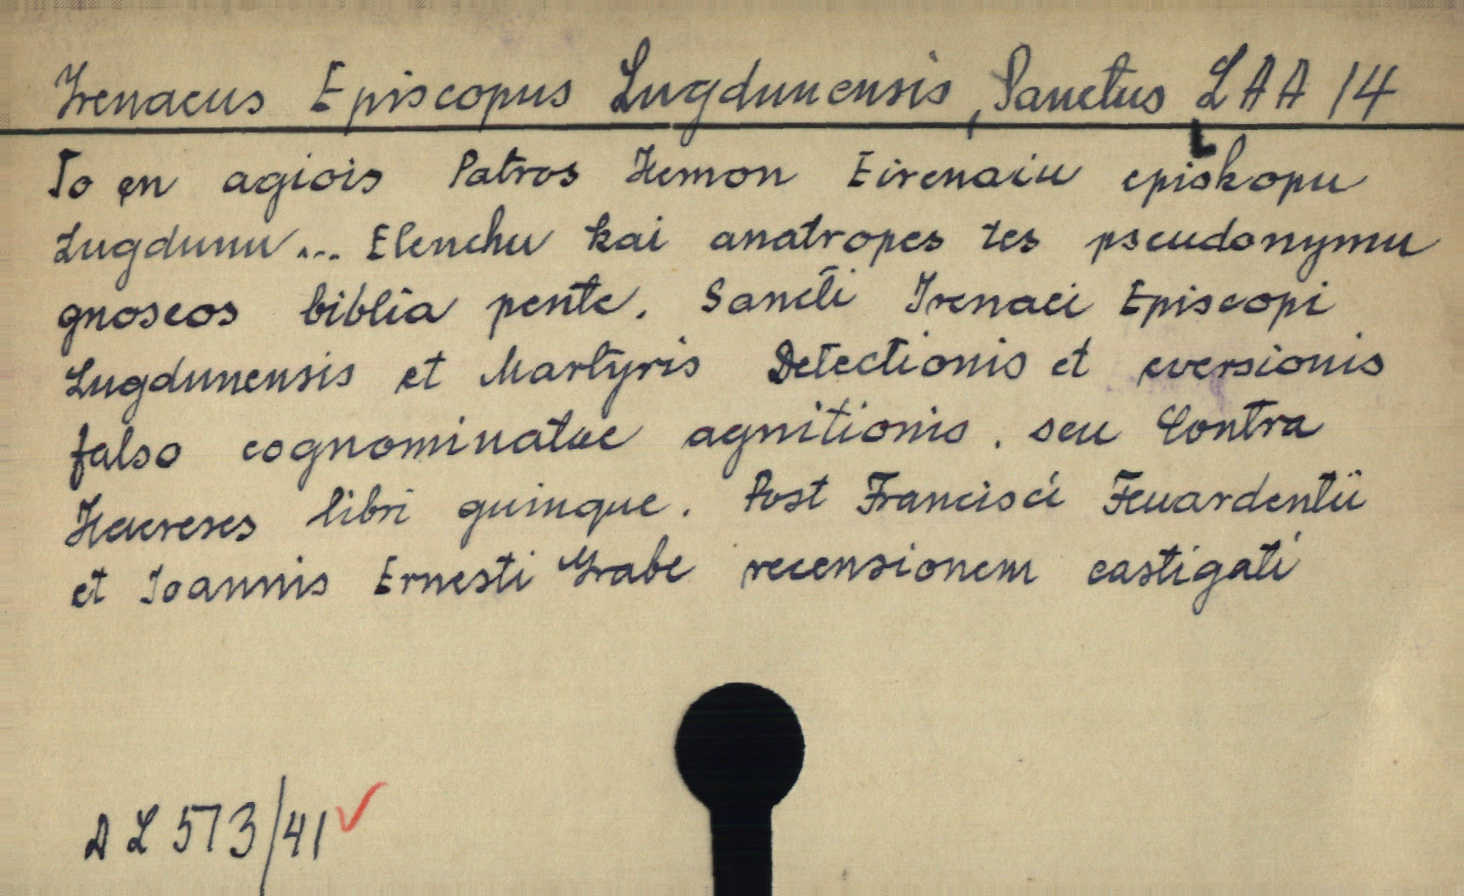 Irenaeus Episcopus Lugdunensis, Sanctus LAA 14
To en agiois Patros Hemon Eirenaiu episkopu
Lugdunu... Elenchu kai anatropes tes pseudonymu
gnoseos biblia pente. Sancti Irenaei Episcopi
Lugdunensis et Martyris Detectionis et eversionis
falso cognominatae agnitionis. seu Contra
Haereses libri quinque. Post Francisci Feuardentii
et Ioannis Ernesti Grabe recensionem castigati
A L 573/41